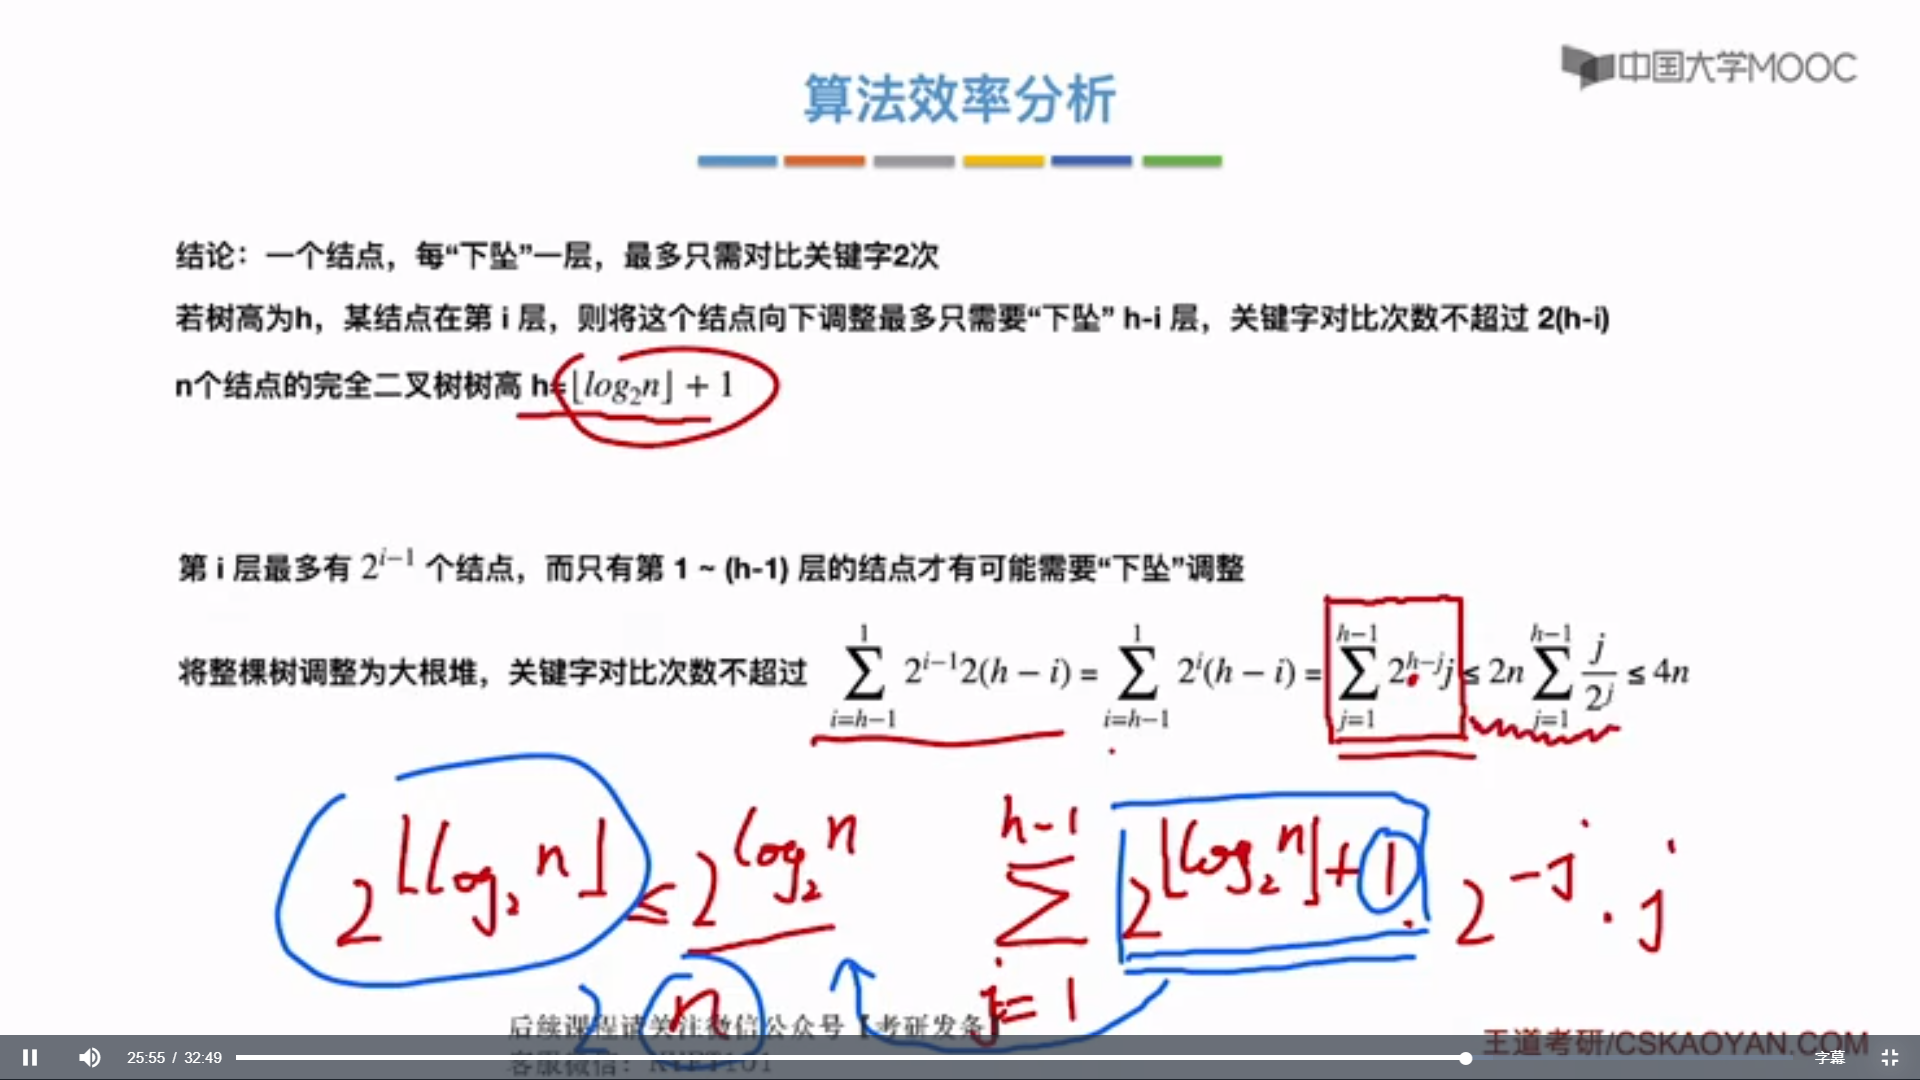 中国大学MOOC
算法效率分析
结论：一个结点，每“下坠”一层，最多只需对比关键字2次
若树高为h，某结点在第 i 层，则将这个结点向下调整最多只需要“下坠” h-i 层，关键字对比次数不超过 2(h-i)
n个结点的完全二叉树树高 h=⌊log₂n⌋ + 1
第 i 层最多有 2^{i−1} 个结点，而只有第 1 ~ (h-1) 层的结点才有可能需要“下坠”调整
将整棵树调整为大根堆，关键字对比次数不超过 \sum_{i=h-1}^{1} 2^{i−1}2(h − i) = \sum_{i=h-1}^{1} 2^{i}(h − i) = \sum_{j=1}^{h-1} 2^{h−j}j ≤ 2n \sum_{j=1}^{h-1} \frac{j}{2^j} ≤ 4n
2^{⌊log₂n⌋} ≤ 2^{log₂n} \sum_{j=1}^{h-1} 2^{⌊log₂n⌋+1} · 2^{-j} · j
2 n
后续课程请关注微信公众号【考研发条】
客服微信：
王道考研/CSKAOYAN.COM
25:55 / 32:49
字幕